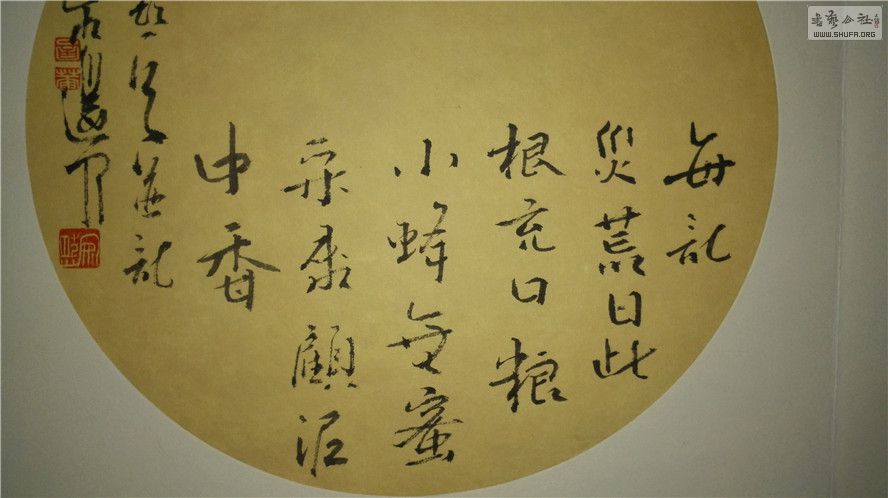 每記
災荒日此
根充日粮
小蜂無蜜
采來顧泥
中香
並記
書藝公社
WWW.SHUFA.ORG